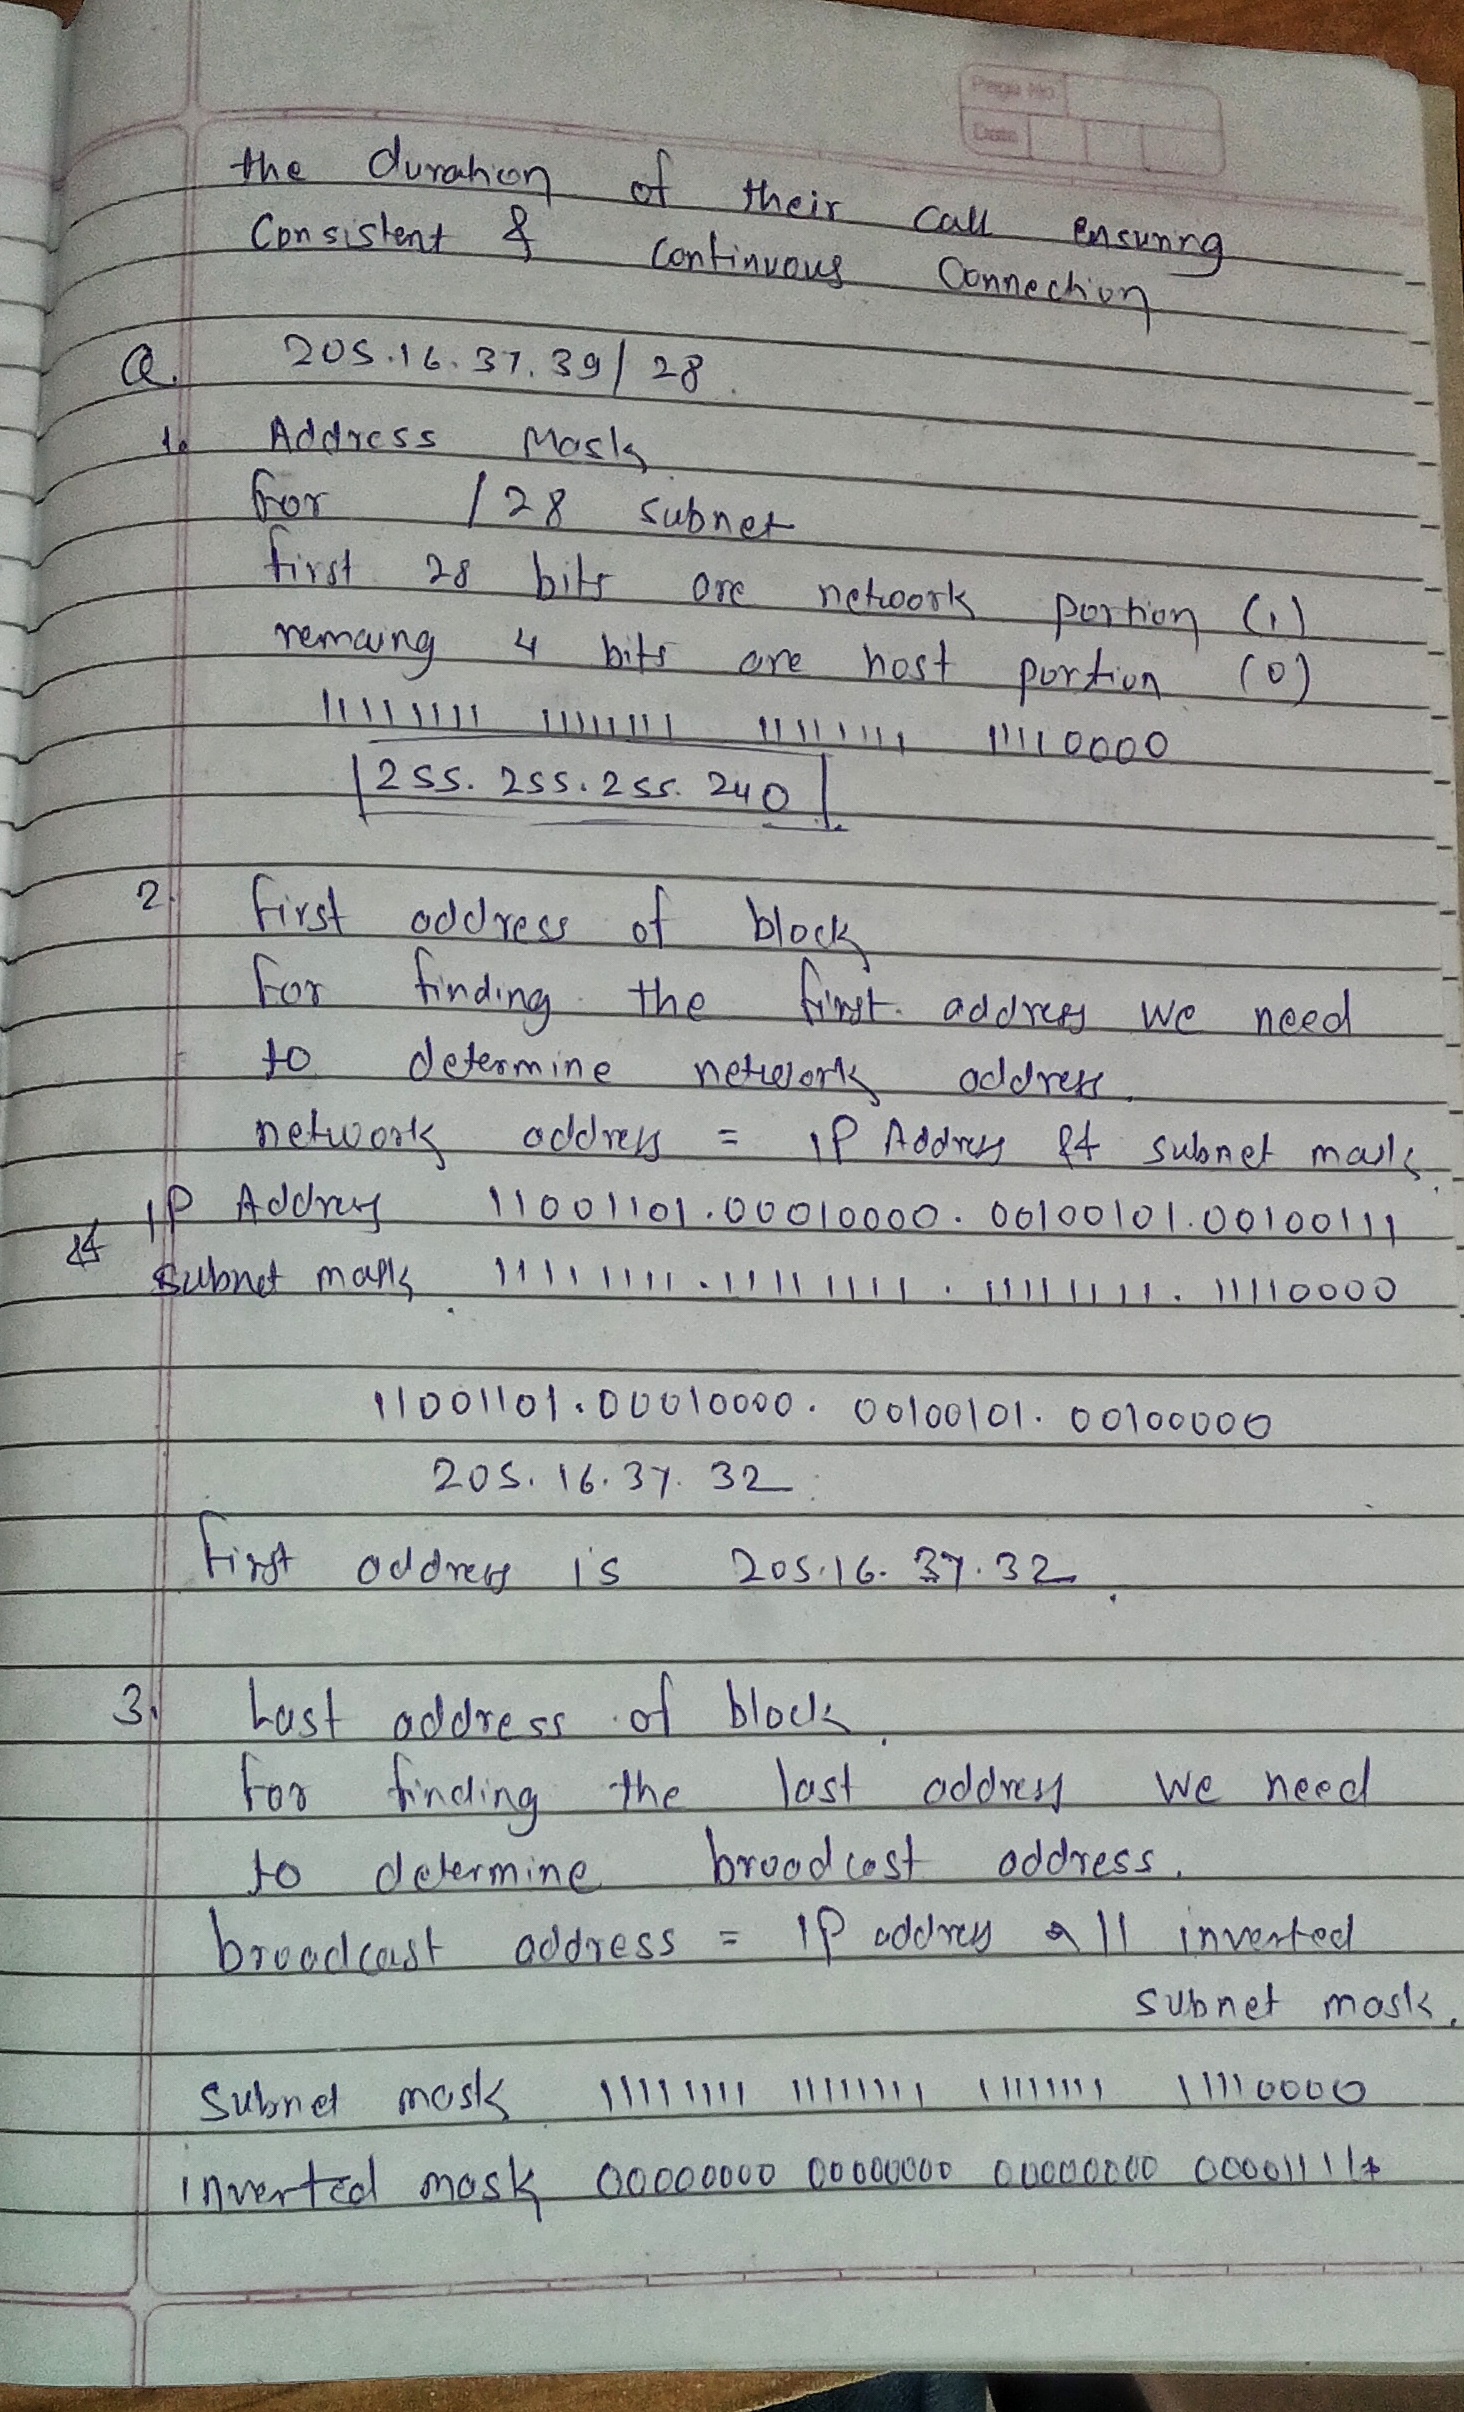 Page No
Date
the duration of their call ensuring
Consistent & Continuous Connection
Q. 205.16.37.39/28
1. Address Mask
for /28 subnet
first 28 bits are network portion (1)
remaing 4 bits are host portion (0)
11111111 11111111 11111111 11110000
255.255.255.240
2. first address of block
For finding the first address we need
to determine network address.
network address = IP Address && subnet mask.
IP Address 11001101.00010000.00100101.00100111
&&
Subnet mask 11111111.11111111.11111111.11110000
11001101.00010000.00100101.00100000
205.16.37.32
First address is 205.16.37.32.
3. Last address of block.
For finding the last address we need
to determine broadcast address.
broadcast address = IP address || inverted
subnet mask.
Subnet mask 11111111 11111111 11111111 11110000
inverted mask 00000000 00000000 00000000 00001111